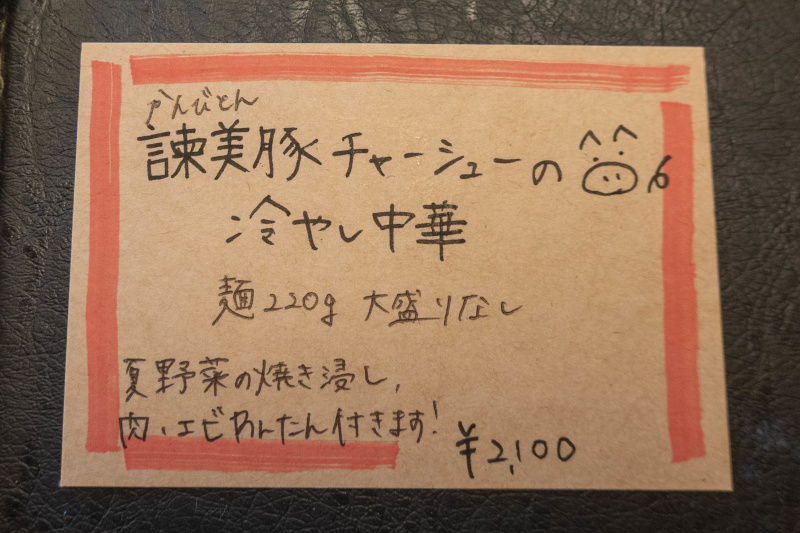 かんびとん
諫美豚チャーシューの
冷やし中華
麺220g 大盛りなし
夏野菜の焼き浸し、
肉、エビわんたん付きます!
¥2,100